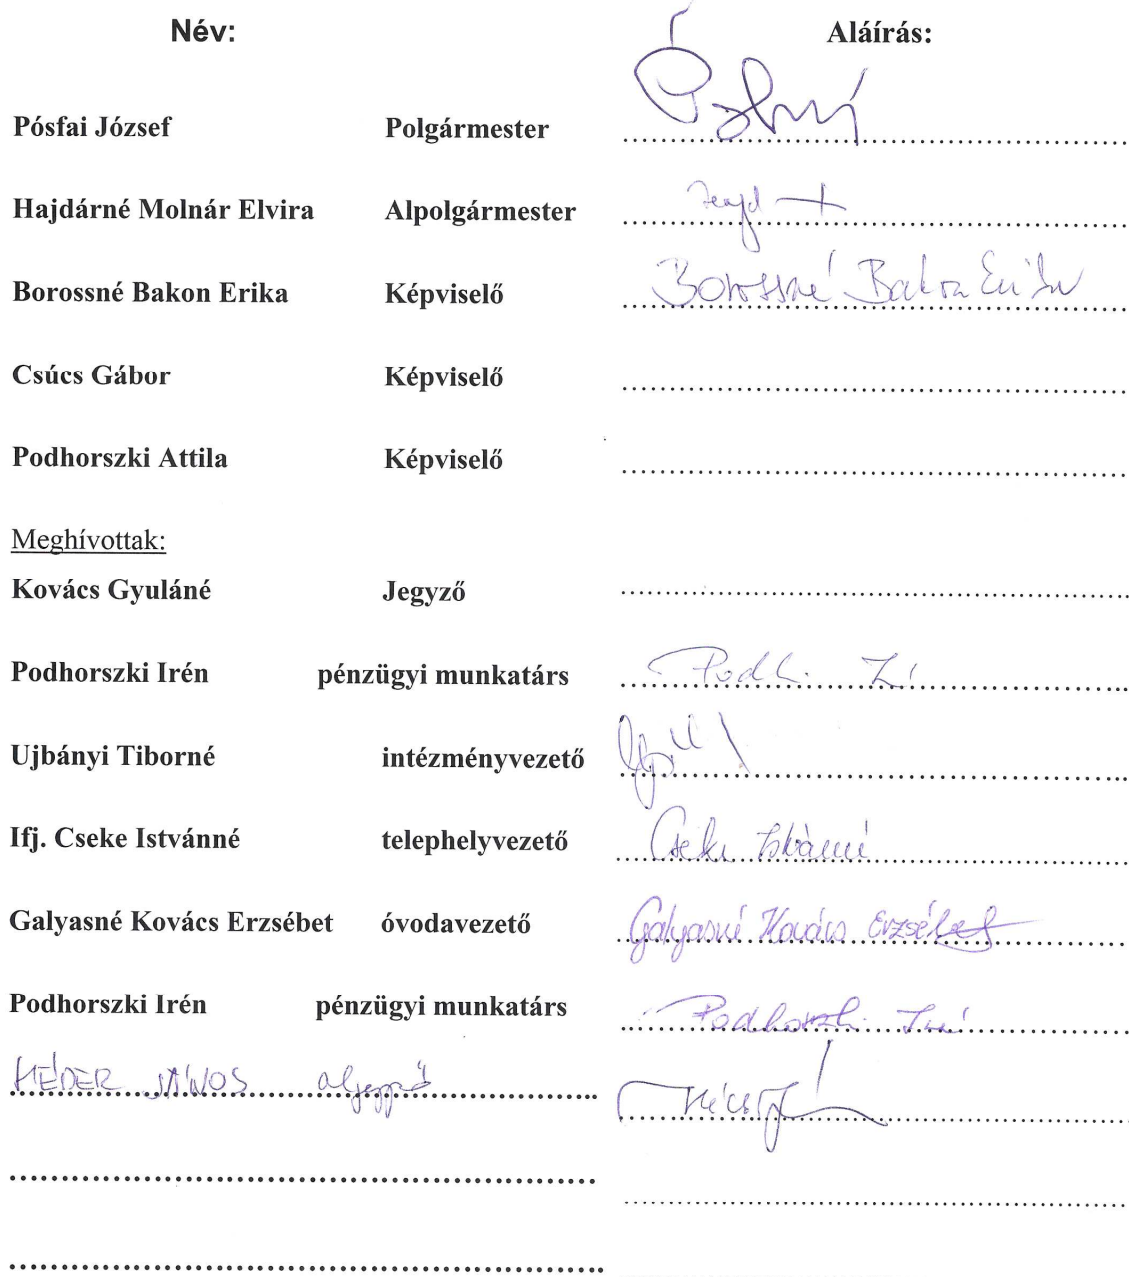 Név: Aláírás:
Pósfai József Polgármester
Hajdárné Molnár Elvira Alpolgármester
Borossné Bakon Erika Képviselő Borossné Bakon Erika
Csúcs Gábor Képviselő
Podhorszki Attila Képviselő
Meghívottak:
Kovács Gyuláné Jegyző
Podhorszki Irén pénzügyi munkatárs Podh.
Ujbányi Tiborné intézményvezető
Ifj. Cseke Istvánné telephelyvezető Cseke Istvánné
Galyasné Kovács Erzsébet óvodavezető Galyasné Kovács Erzsébet
Podhorszki Irén pénzügyi munkatárs Podhorszki Irén
HÉDER JÁNOS aljegyző